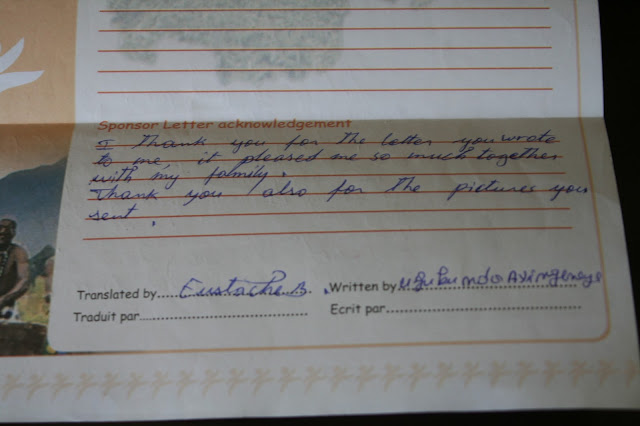 Sponsor Letter acknowledgement
I Thank you for the letter you wrote
to me, it pleased me so much together
with my family.
Thank you also for the pictures you
sent.
Translated by Eustache B. Written by
Traduit par Ecrit par